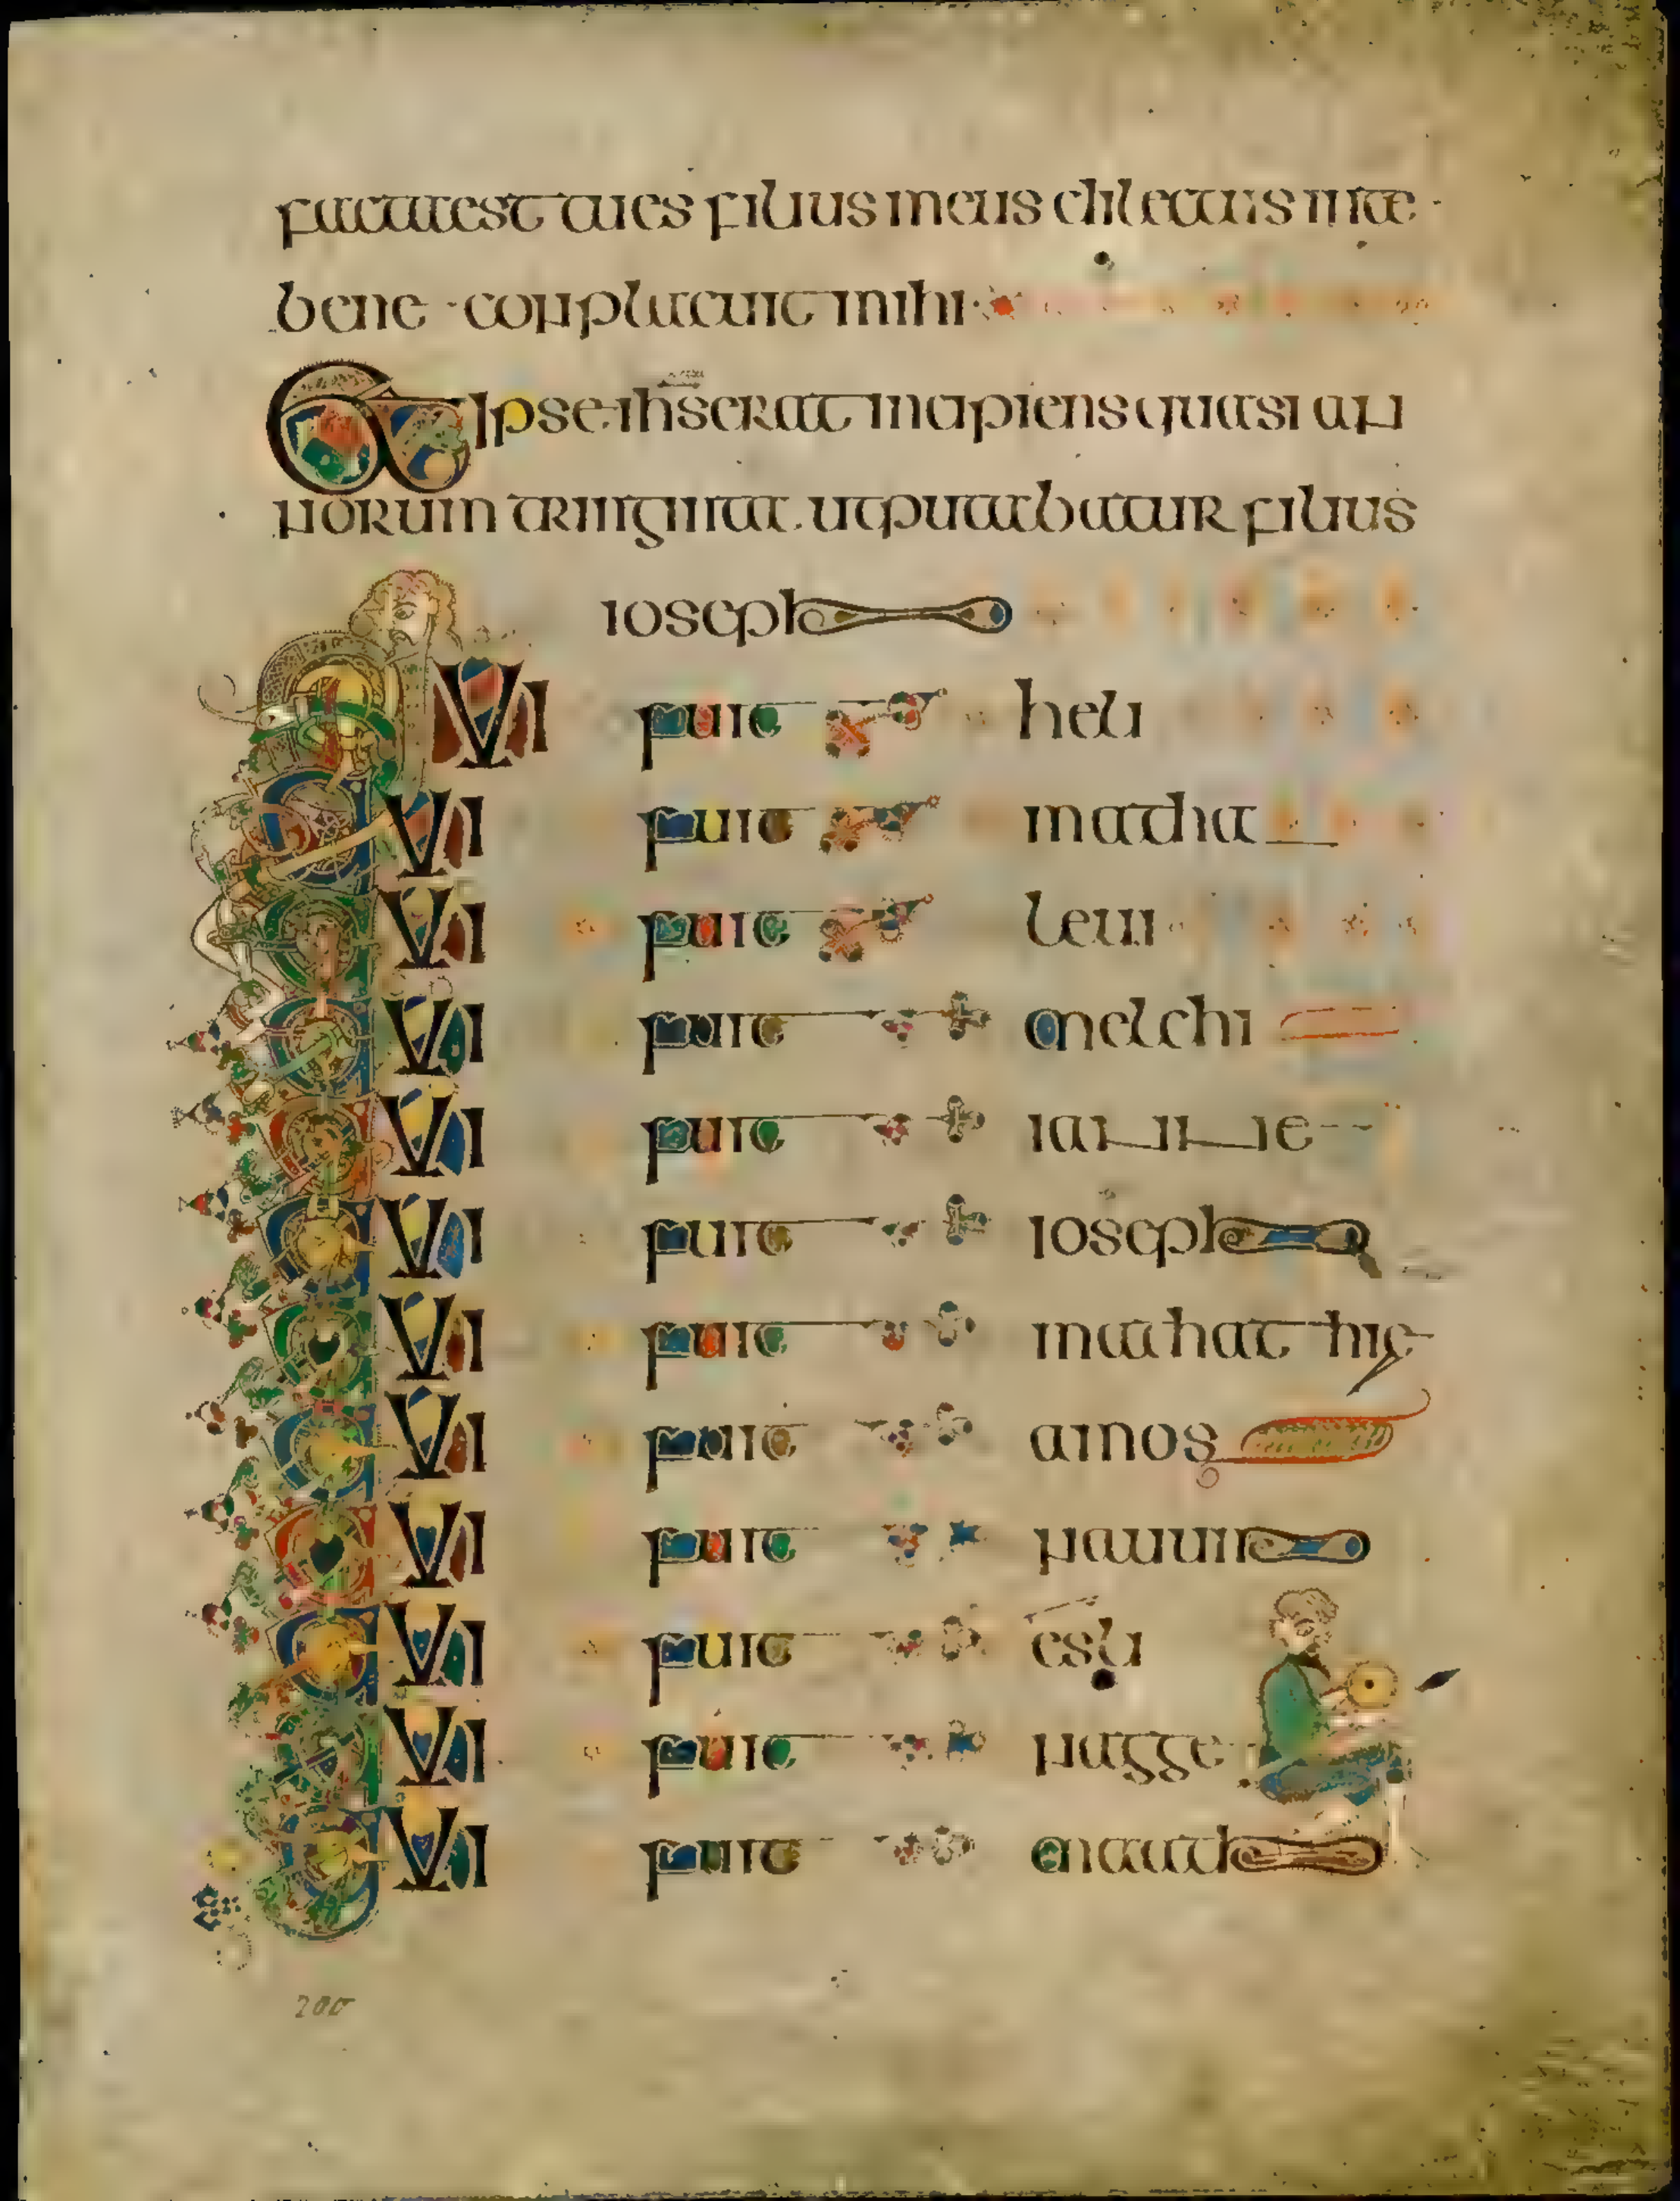 facta est tu es filius meus dilectus in te
bene conplacuit mihi
Et ipse ihs erat incipiens quasi an
norum triginta ut putabatur filius
ioseph
QVI fuit heli
QVI fuit matha
QVI fuit leui
QVI fuit melchi
QVI fuit iannae
QVI fuit ioseph
QVI fuit mathathie
QVI fuit amos
QVI fuit nauum
QVI fuit esli
QVI fuit nagge
QVI fuit maath
200